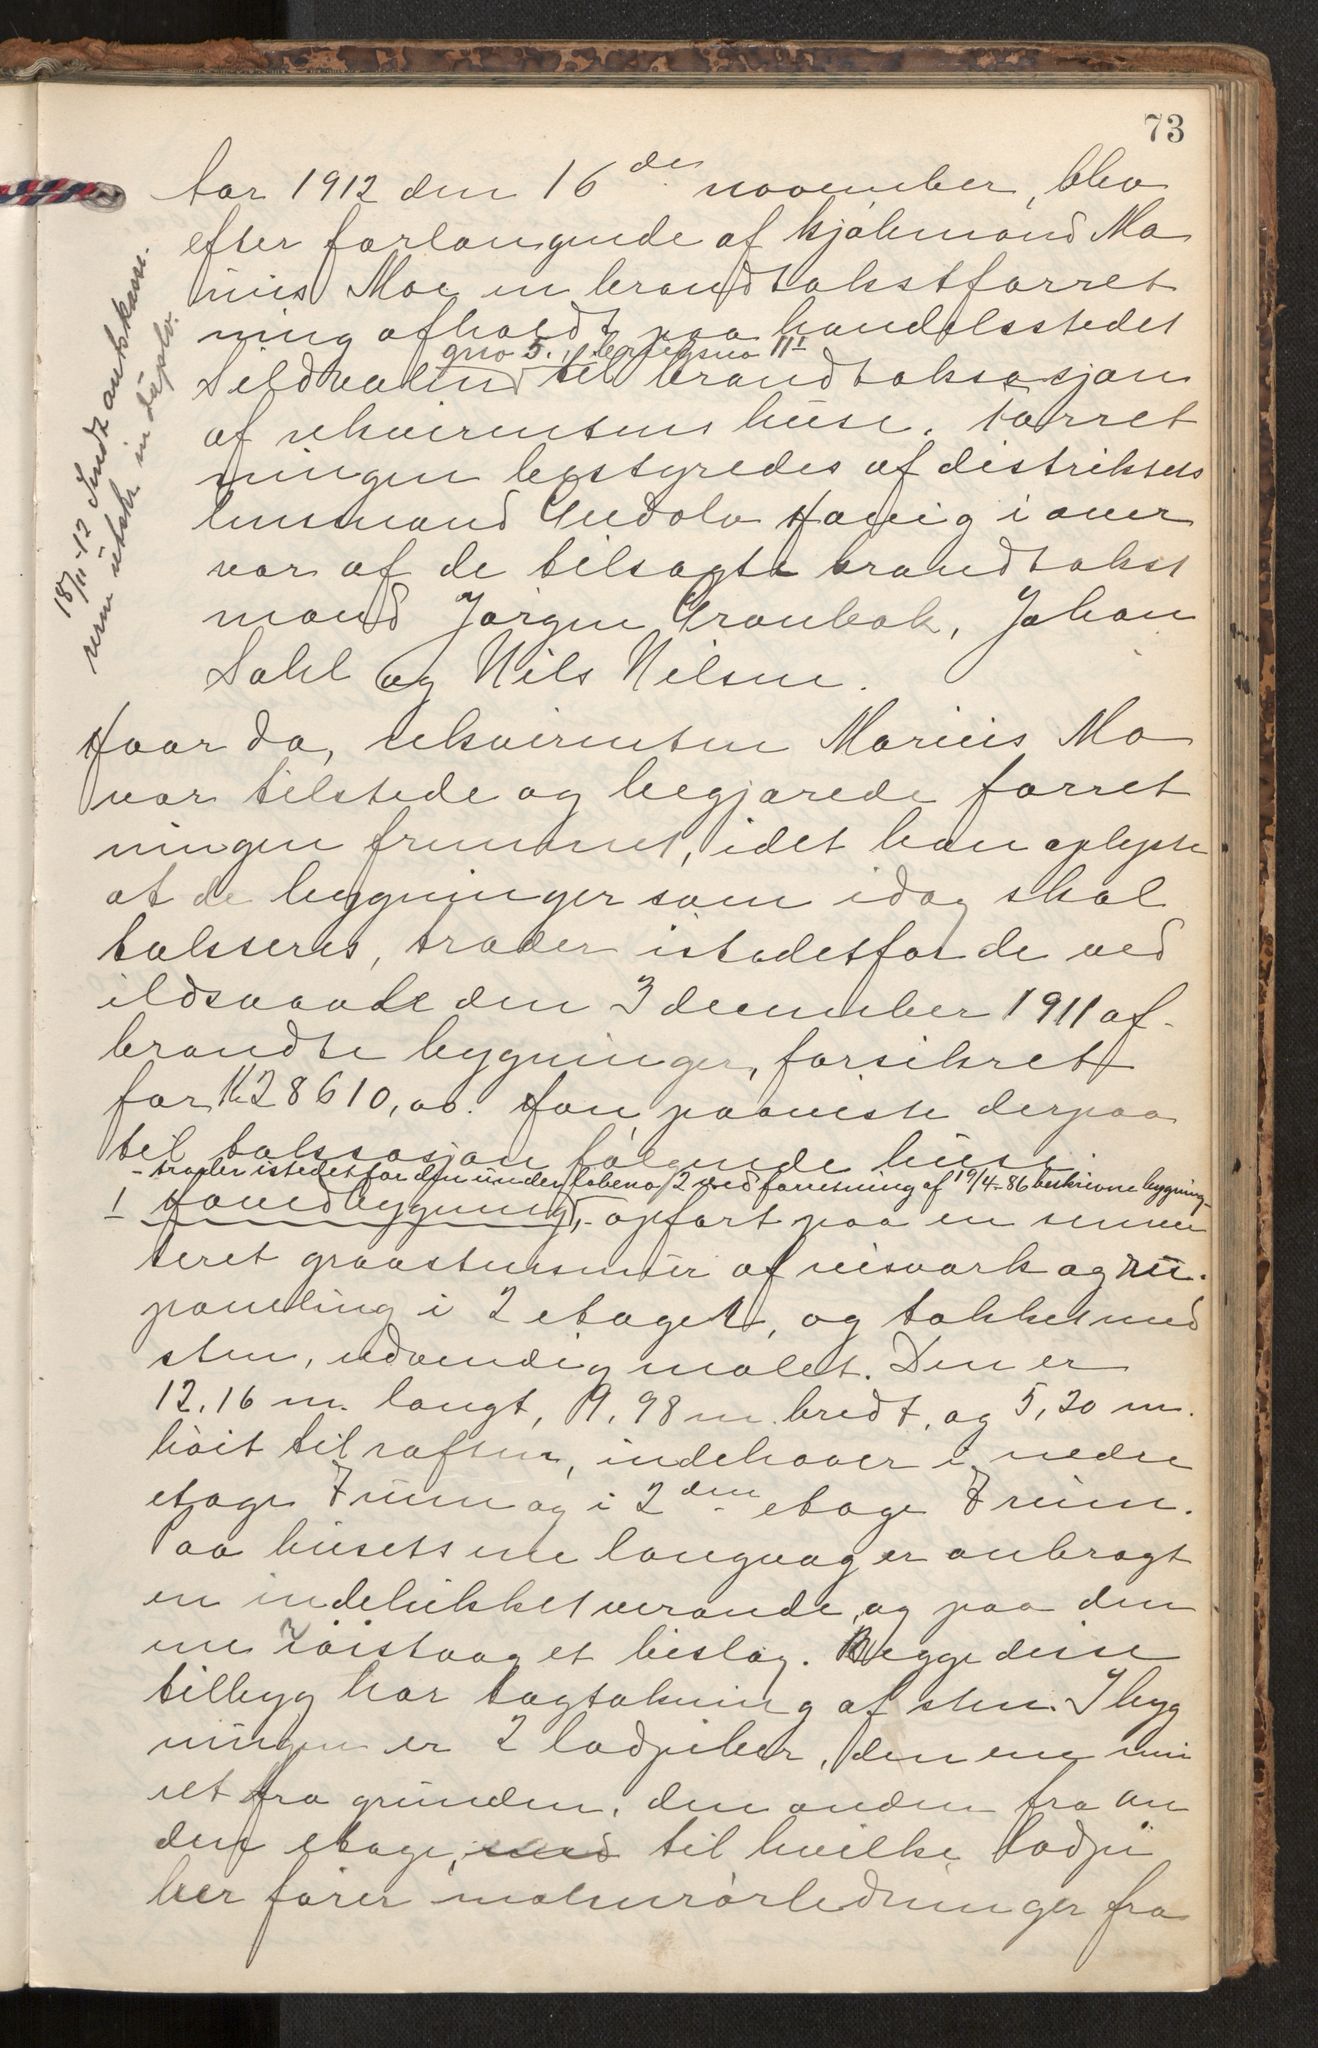 73
Aar 1912 den 16de november, blev
efter forlangende af kjøbmand Ma
rius Moe en brandtakstforret
ning afholdt paa handelsstedet
gno 5. brugsno 111
Sildvalen til brandtaksasjon
af rekvirentens huse. Forret
ningen bestyredes af distriktets
lensmand Gudolv Hauig i over
vær af de tilsagte brandtakst
mænd Jørgen Grønbæk, Johan
Dahl og Nils Nilsen.
18/11-12 Sendt amtskasse
reren utskr. in duplo.
Hvor da, rekvirenten Marius Mo
var tilstede og begjærede forret
ningen fremmet, idet han oplyste
at de bygninger som idag skal
takseres, træder istedetfor de ved
ildsvaade den 3 december 1911 af-
brændte bygninger, forsikret
for K 28610,00. Han paaviste derpaa
til taksasjon følgende huse:
- træder istedetfor den under løbeno 2 ved forretning af 19/4-86 beskrevne bygning -
1 Hovedbygning, - opført paa en semen
teret graastensmur af reisværk og ru.
paneling i 2 etager, og tækket med
sten, udvendig malet. Den er
12,16 m. langt, 9,98 m. bredt, og 5,20 m.
høit til raften, indehaver i nedre
etage 7 rum og i 2den etage 7 rum.
Paa husets ene langvæg er anbragt
en indelukket verande, og paa den
ene røistvæg et bislag. Begge disse
tilbyg har tagtækning af sten. I byg
ningen er 2 ladpiber, den ene mu
ret fra grunden, den anden fra an
den etage, til hvilke ladpi
ber fører rørledninger fra